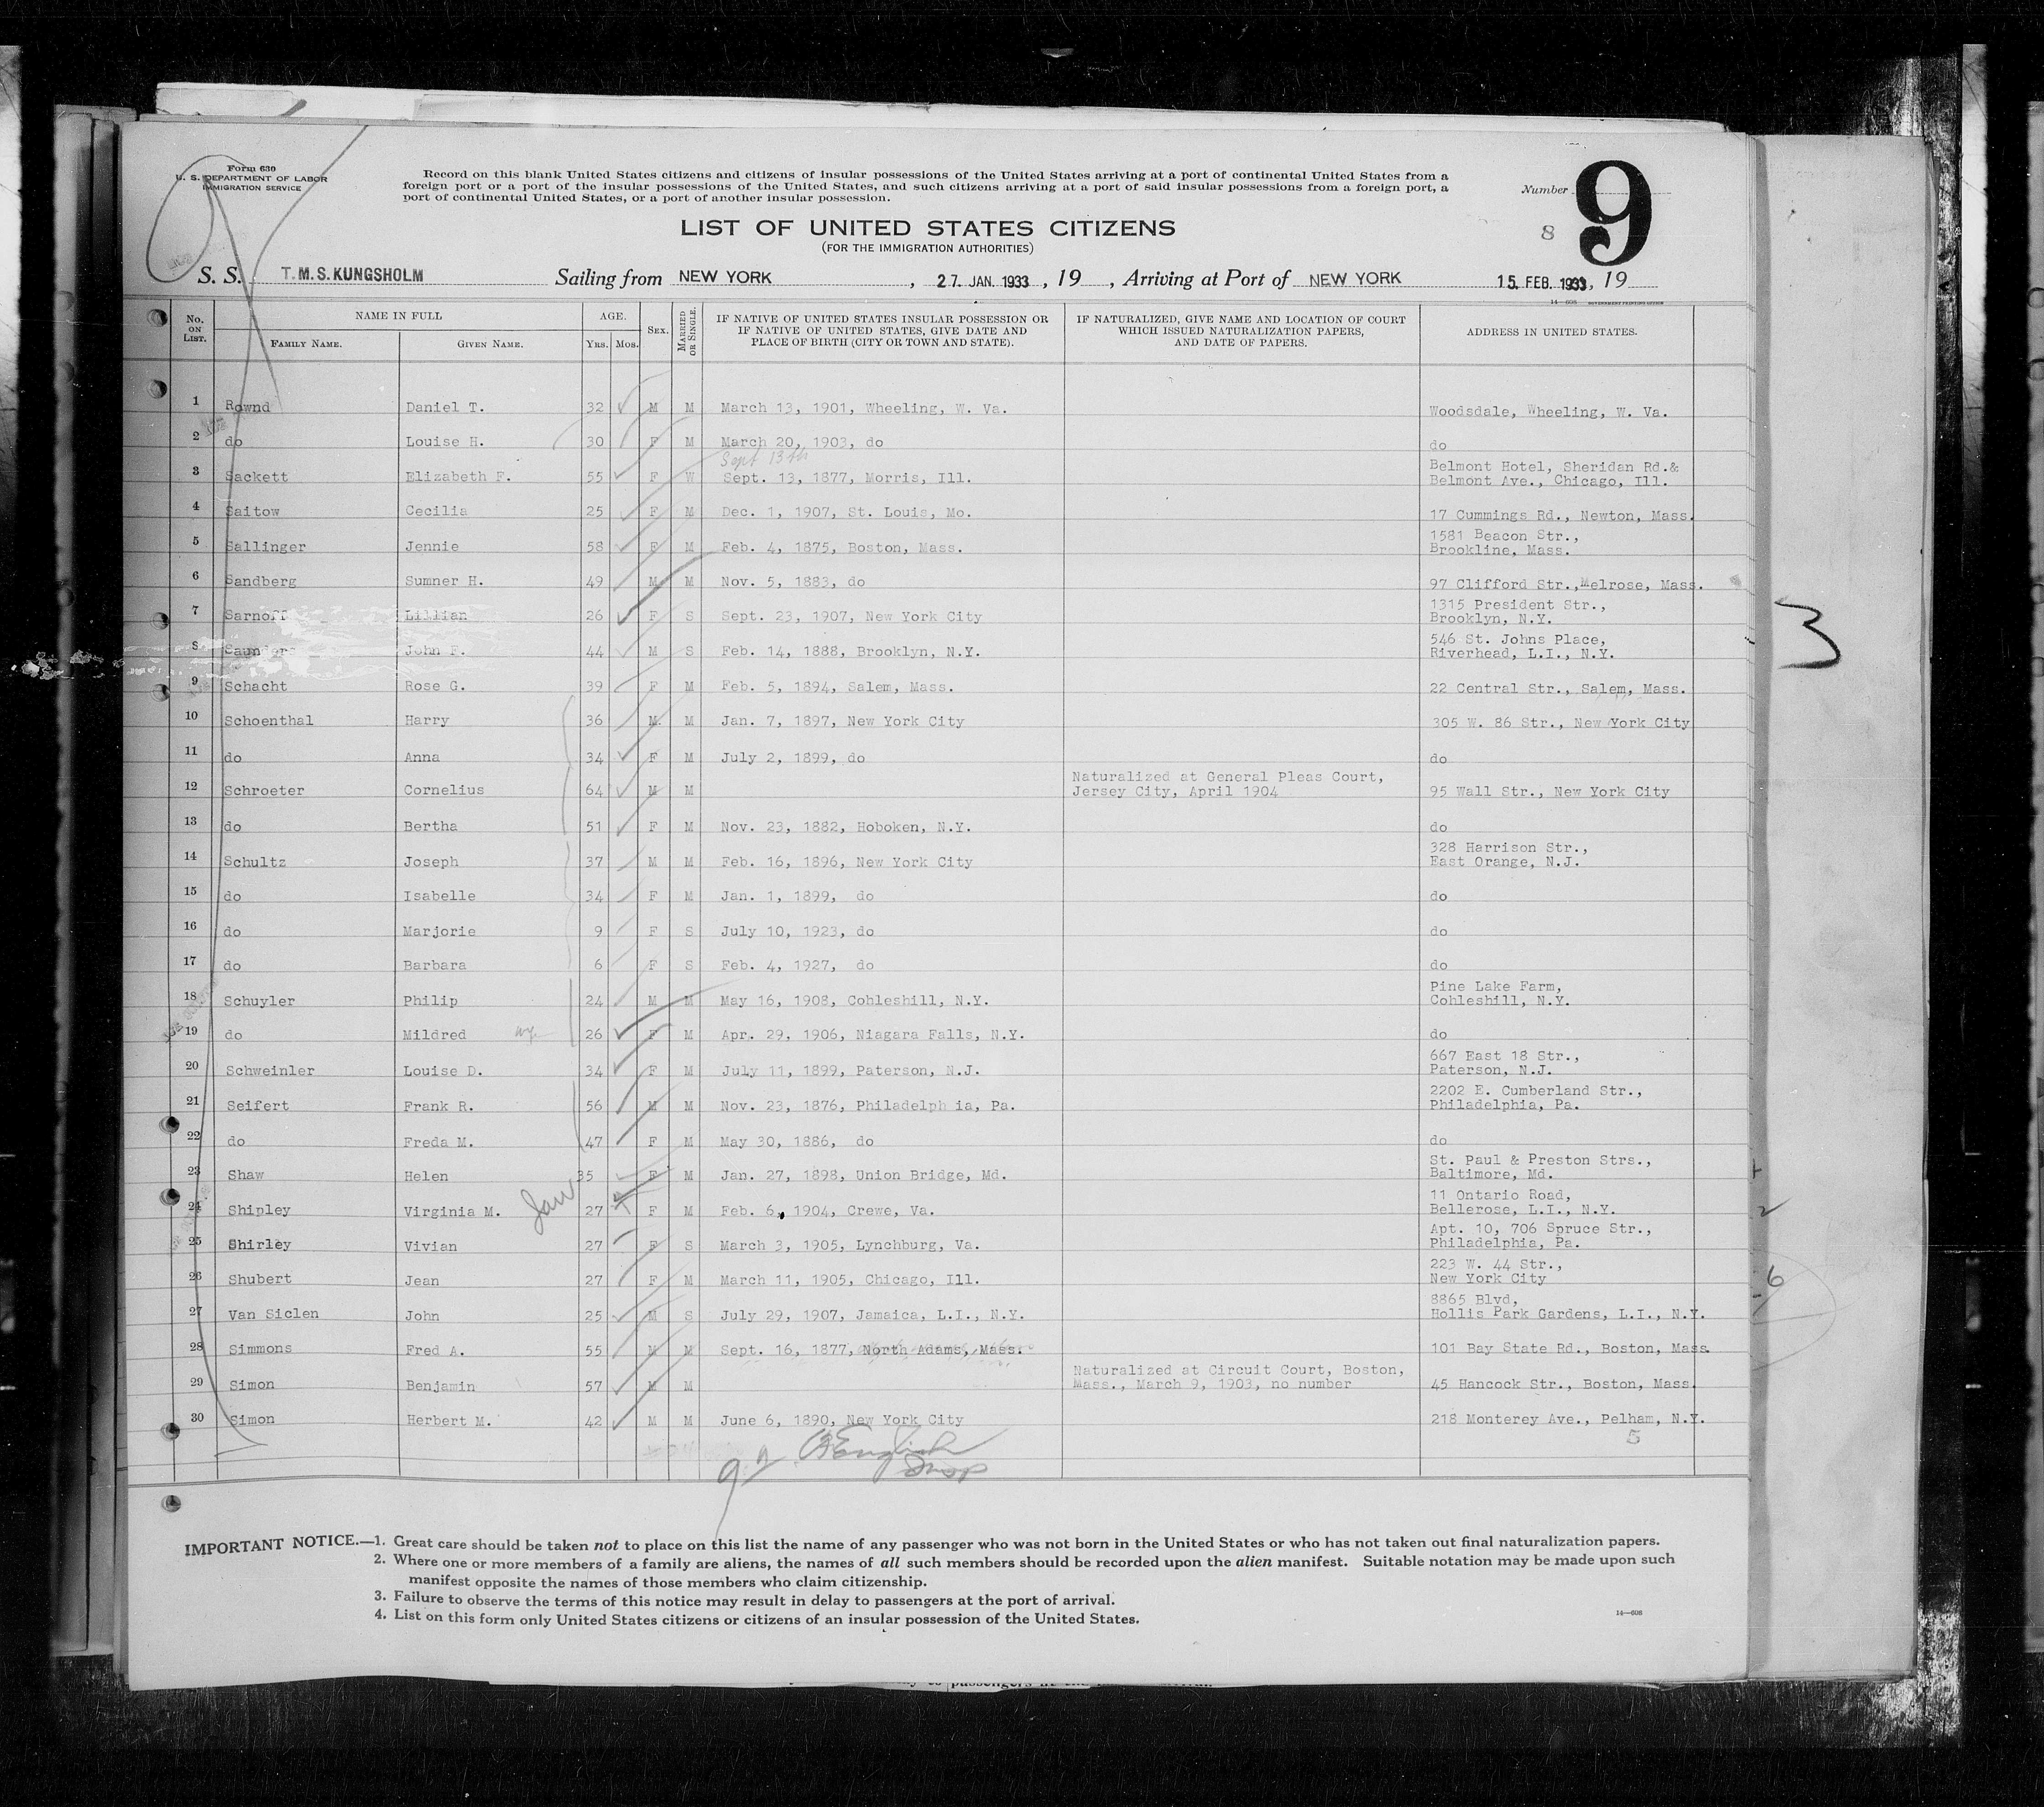 Form 630
U. S. DEPARTMENT OF LABOR
IMMIGRATION SERVICE
Record on this blank United States citizens and citizens of insular possessions of the United States arriving at a port of continental United States from a
foreign port or a port of the insular possessions of the United States, and such citizens arriving at a port of said insular possessions from a foreign port, a
port of continental United States, or a port of another insular possession.
Number 9
8
LIST OF UNITED STATES CITIZENS
(FOR THE IMMIGRATION AUTHORITIES)
S. S. T.M.S.KUNGSHOLM Sailing from NEW YORK , 27. JAN. 1933 , 19 , Arriving at Port of NEW YORK 15. FEB. 1933, 19
14—608 GOVERNMENT PRINTING OFFICE
No. ON LIST. NAME IN FULL FAMILY NAME. GIVEN NAME. AGE. Yrs. Mos. SEX. MARRIED OR SINGLE. IF NATIVE OF UNITED STATES INSULAR POSSESSION OR IF NATIVE OF UNITED STATES, GIVE DATE AND PLACE OF BIRTH (CITY OR TOWN AND STATE). IF NATURALIZED, GIVE NAME AND LOCATION OF COURT WHICH ISSUED NATURALIZATION PAPERS, AND DATE OF PAPERS. ADDRESS IN UNITED STATES.
1 Rownd Daniel T. 32 M M March 13, 1901, Wheeling, W. Va. Woodsdale, Wheeling, W. Va.
2 do Louise H. 30 F M March 20, 1903, do do
Sept 13th
3 Sackett Elizabeth F. 55 F W Sept. 13, 1877, Morris, Ill. Belmont Hotel, Sheridan Rd.& Belmont Ave., Chicago, Ill.
4 Saitow Cecilia 25 F M Dec. 1, 1907, St. Louis, Mo. 17 Cummings Rd., Newton, Mass.
5 Sallinger Jennie 58 F M Feb. 4, 1875, Boston, Mass. 1581 Beacon Str., Brookline, Mass.
6 Sandberg Sumner H. 49 M M Nov. 5, 1883, do 97 Clifford Str., Melrose, Mass.
7 Sarnoff Lillian 26 F S Sept. 23, 1907, New York City 1315 President Str., Brooklyn, N.Y.
8 Saunders John F. 44 M S Feb. 14, 1888, Brooklyn, N.Y. 546 St. Johns Place, Riverhead, L.I., N.Y.
9 Schacht Rose G. 39 F M Feb. 5, 1894, Salem, Mass. 22 Central Str., Salem, Mass.
10 Schoenthal Harry 36 M M Jan. 7, 1897, New York City 305 W. 86 Str., New York City
11 do Anna 34 F M July 2, 1899, do do
12 Schroeter Cornelius 64 M M Naturalized at General Pleas Court, Jersey City, April 1904 95 Wall Str., New York City
13 do Bertha 51 F M Nov. 23, 1882, Hoboken, N.Y. do
14 Schultz Joseph 37 M M Feb. 16, 1896, New York City 328 Harrison Str., East Orange, N.J.
15 do Isabelle 34 F M Jan. 1, 1899, do do
16 do Marjorie 9 F S July 10, 1923, do do
17 do Barbara 6 F S Feb. 4, 1927, do do
18 Schuyler Philip 24 M M May 16, 1908, Cohleshill, N.Y. Pine Lake Farm, Cohleshill, N.Y.
19 do Mildred 26 F M Apr. 29, 1906, Niagara Falls, N.Y. do
20 Schweinler Louise D. 34 F M July 11, 1899, Paterson, N.J. 667 East 18 Str., Paterson, N.J.
21 Seifert Frank R. 56 M M Nov. 23, 1876, Philadelph ia, Pa. 2202 E. Cumberland Str., Philadelphia, Pa.
22 do Freda M. 47 F M May 30, 1886, do do
23 Shaw Helen 35 F M Jan. 27, 1898, Union Bridge, Md. St. Paul & Preston Strs., Baltimore, Md.
24 Shipley Virginia M. Jan 27 F M Feb. 6, 1904, Crewe, Va. 11 Ontario Road, Bellerose, L.I., N.Y.
25 Shirley Vivian 27 F S March 3, 1905, Lynchburg, Va. Apt. 10, 706 Spruce Str., Philadelphia, Pa.
26 Shubert Jean 27 F M March 11, 1905, Chicago, Ill. 223 W. 44 Str., New York City
27 Van Siclen John 25 M S July 29, 1907, Jamaica, L.I., N.Y. 8865 Blvd, Hollis Park Gardens, L.I., N.Y.
28 Simmons Fred A. 55 M M Sept. 16, 1877, North Adams, Mass. 101 Bay State Rd., Boston, Mass.
29 Simon Benjamin 57 M M Naturalized at Circuit Court, Boston, Mass., March 9, 1903, no number 45 Hancock Str., Boston, Mass.
30 Simon Herbert M. 42 M M June 6, 1890, New York City 218 Monterey Ave., Pelham, N.Y.
5
English
Insp
3
6
IMPORTANT NOTICE.—1. Great care should be taken not to place on this list the name of any passenger who was not born in the United States or who has not taken out final naturalization papers.
2. Where one or more members of a family are aliens, the names of all such members should be recorded upon the alien manifest. Suitable notation may be made upon such
manifest opposite the names of those members who claim citizenship.
3. Failure to observe the terms of this notice may result in delay to passengers at the port of arrival.
4. List on this form only United States citizens or citizens of an insular possession of the United States.
14—608